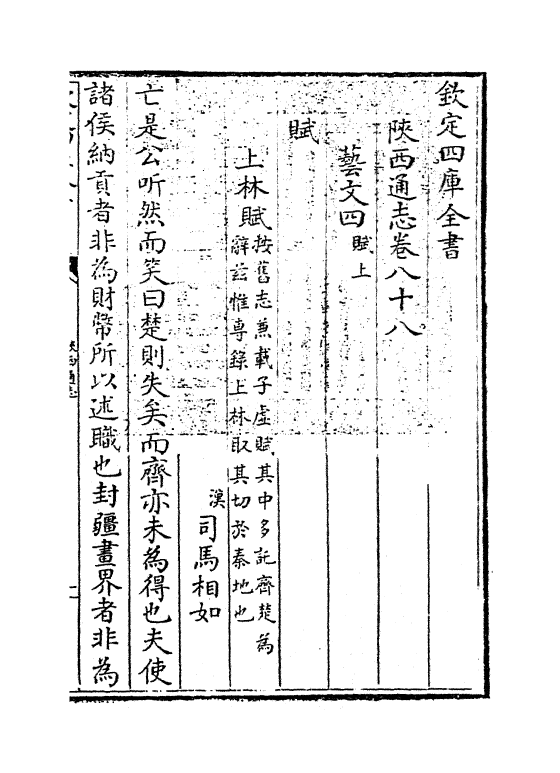 欽定四庫全書
陜西通志卷八十八
藝文四賦上
賦
上林賦按舊志兼載子虛賦其中多託齊楚為
辭兹惟專錄上林取其切於秦地也
漢司馬相如
亡是公听然而笑曰楚則失矣而齊亦未為得也夫使
諸侯納貢者非為財幣所以述職也封疆畫界者非為